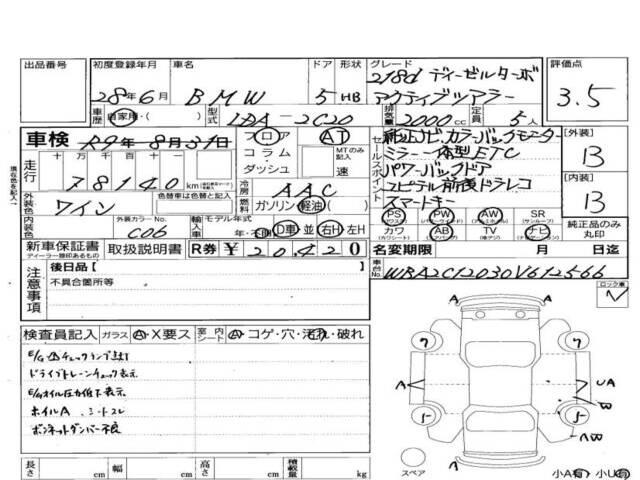 出品番号 初度登録年月 車名 ドア 形状 グレード 評価点
28年6月 BMW 5 HB 218d ディーゼルターボ アクティブツアラー 3.5
車歴 自家用・( ) 型式 LDA-2C20 排気量 2000cc 定員 5人
車検 R9年8月31日 フロア AT
コラム・ダッシュ MTのみ記入 速
セールスポイント 純正ナビ.カラーバックモニター
ミラー一体型ETC
パワーバックドア
ユピテル前後ドラレコ
スマートキー
[外装] B
[内装] B
走行 十万 万 千 百 十
78140 km
冷房 AAC
外装色 ワイン 色替車は色替と記入 燃料 ガソリン 軽油・( )
内装色 外装カラーNo. C06 輸入車 モデル年式 年・ D車・並 右H・左H
PS (パワステ) PW (パワーウインドウ) AW (アルミホイル) SR (サンルーフ)
カワ (カワシート) AB (エアバック) TV (地デジ) ナビ
純正品のみ丸印
新車保証書 ディーラー捺印あるもの 取扱説明書 R券 ¥20,420
名変期限 月 日迄
車台No. WBA2C12030V612566
注意事項 後日品【 】
不具合箇所等
ロック車
検査員記入 ガラス A・X要ス 室内シート A・コゲ・穴・汚れ・破れ
ドライブトレーンチェック表示
E/Gオイル圧力低下表示
ホイルA、シートスレ
ボンネットダンパー不良
A
A
7 7
A UA
W
5 5
AW
A
スペア
小A有 小U有
長さ cm 幅 cm 高さ cm 積載量 kg